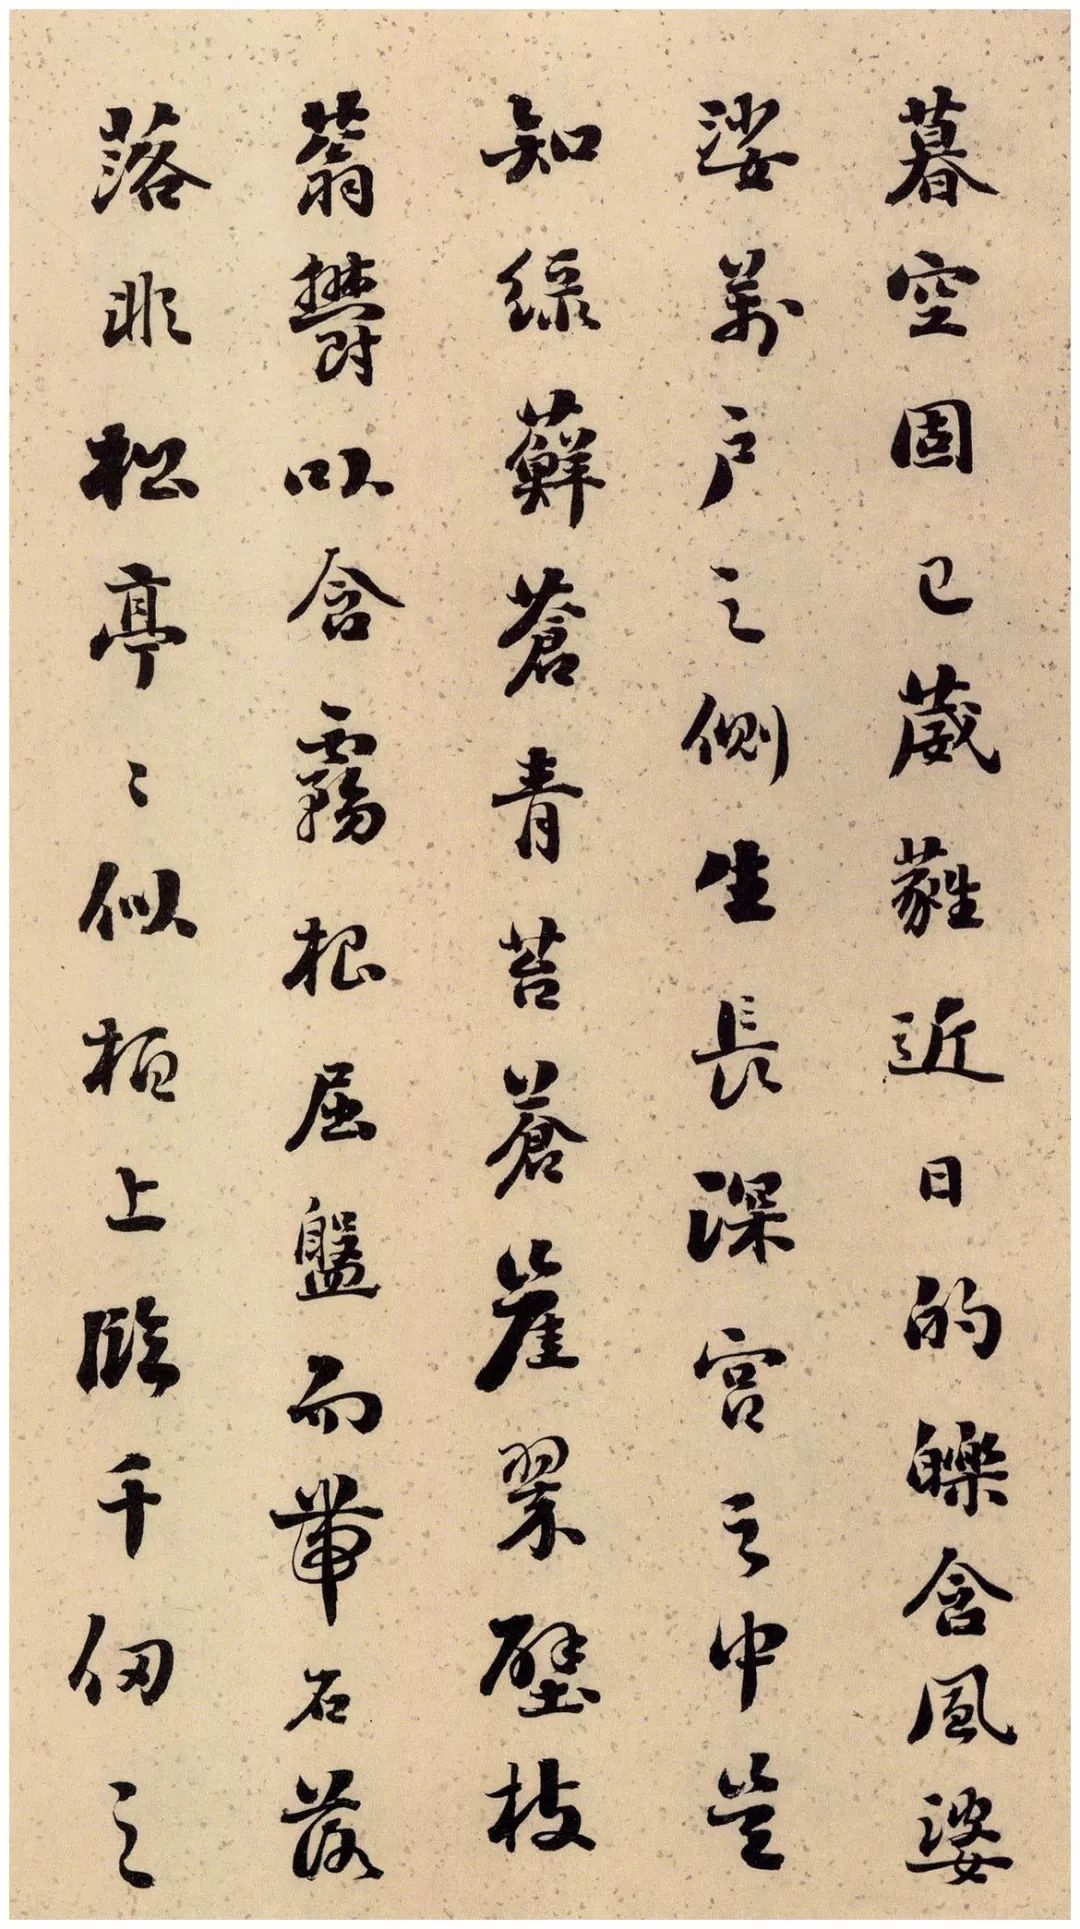 暮空固已葳蕤近日的皪含風婆
娑萬戶之側生長深宮之中豈
知綠蘚蒼青苔蒼崖翠壁枝
蓊鬱以含霧根屈盤而帶石落
落非松亭〻似栢上臨千仞之